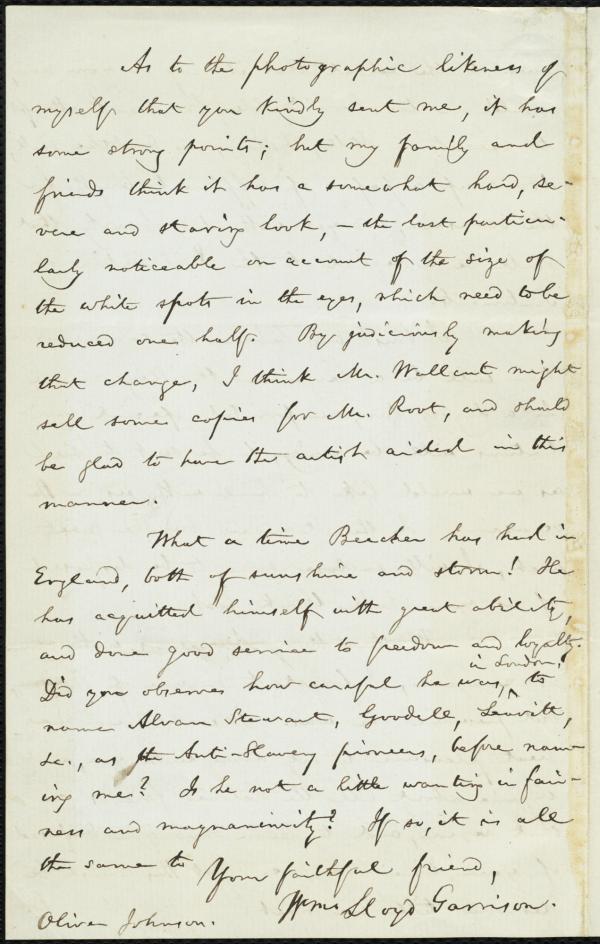 As to the photographic likeness of
myself that you kindly sent me, it has
some strong points; but my family and
friends think it has a somewhat hard, se-
vere and staring look, – the last particu-
larly noticeable on account of the size of
the white spots in the eyes, which need to be
reduced one half. By judiciously making
that change, I think Mr. Wallcut might
sell some copies for Mr. Root, and should
be glad to have the artist aided in this
manner.
What a time Beecher has had in
England, both of sunshine and storm! He
has acquitted himself with great ability,
and done good service to freedom and loyalty.
Did you observe how careful he was, in London, to
name Alvan Stewart, Goodell, Leavitt,
&c., as the Anti-Slavery pioneers, before nam-
ing me? Is he not a little wanting in fair-
ness and magnanimity? If so, it is all
the same to
Your faithful friend,
Wm. Lloyd Garrison.
Oliver Johnson.